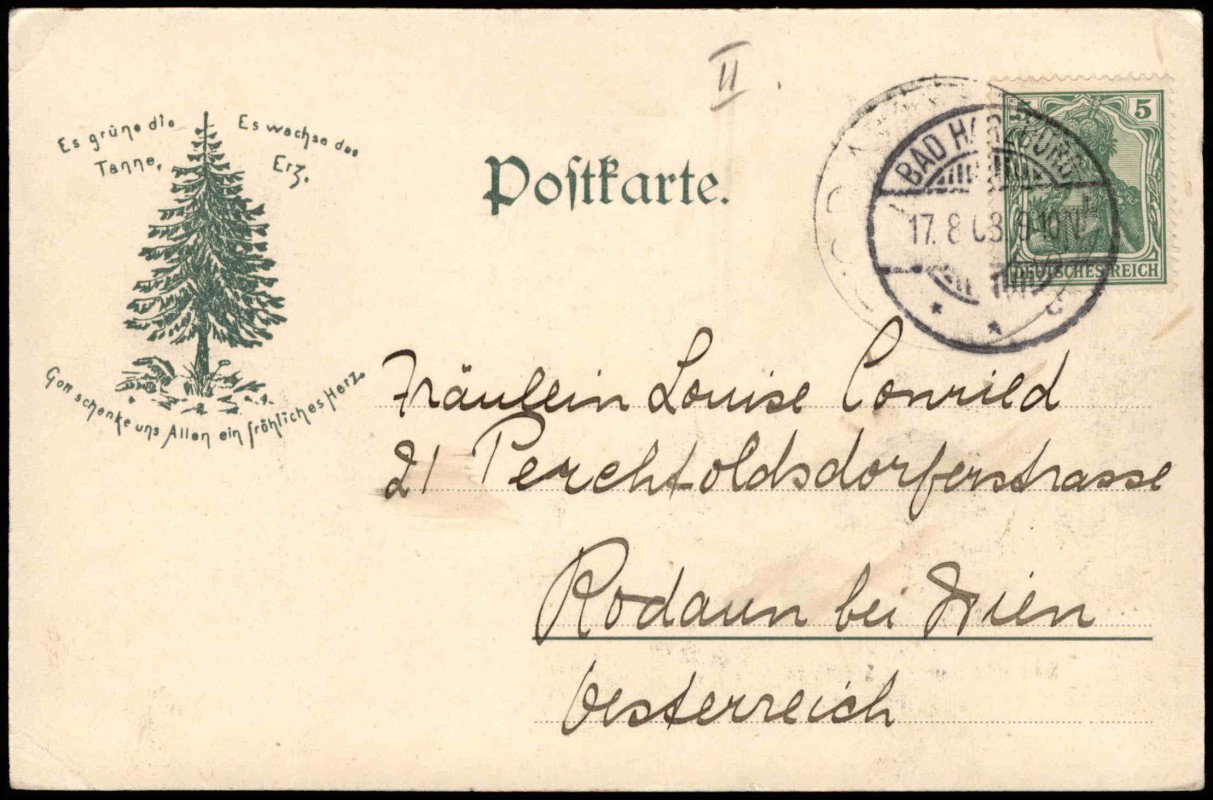 II.
Es grüne die
Tanne,
Es wachse das
Erz.
Gott schenke uns Allen ein fröhliches Herz.
Postkarte.
5 5
DEUTSCHES REICH
BAD HARZBURG
17. 8 03 9-10N
Fräulein Louise Conrild
21 Perchtoldsdorferstrasse
Rodaun bei Wien
Oesterreich